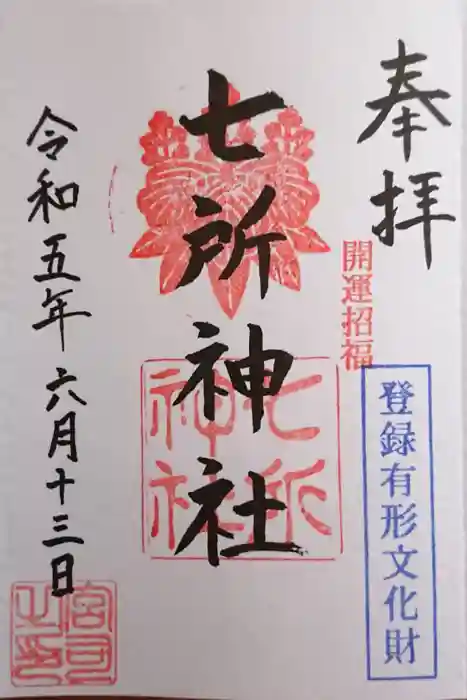 奉拝
開運招福
登録有形文化財
七所神社
七所神社
令和五年六月十三日
宮司之印